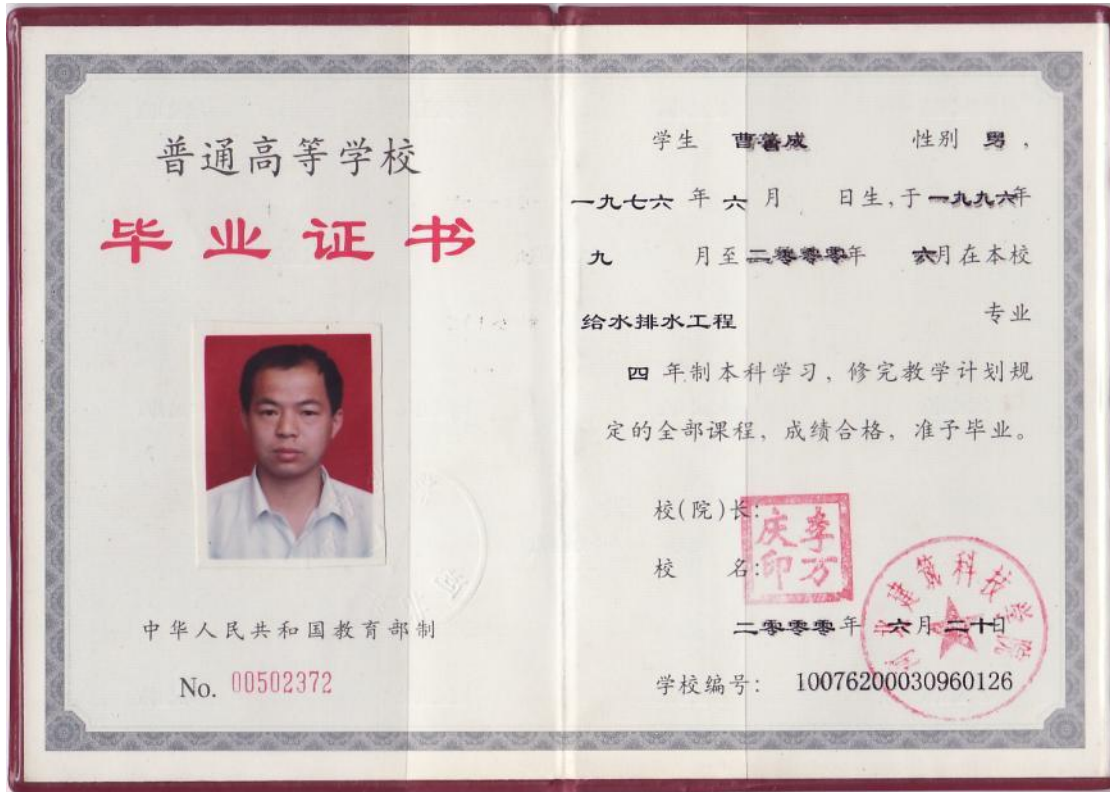 普通高等学校
毕业证书
中华人民共和国教育部制
No. 00502372
学生 曹善成 性别 男,
一九七六 年 六 月 日生,于 一九九六年
九 月至 二零零零年 六月在本校
给水排水工程 专业
四 年制本科学习，修完教学计划规
定的全部课程，成绩合格，准予毕业。
校(院)长:
李万庆印
校 名:
河北建筑科技学院
二零零零年 六月二十日
学校编号: 10076200030960126